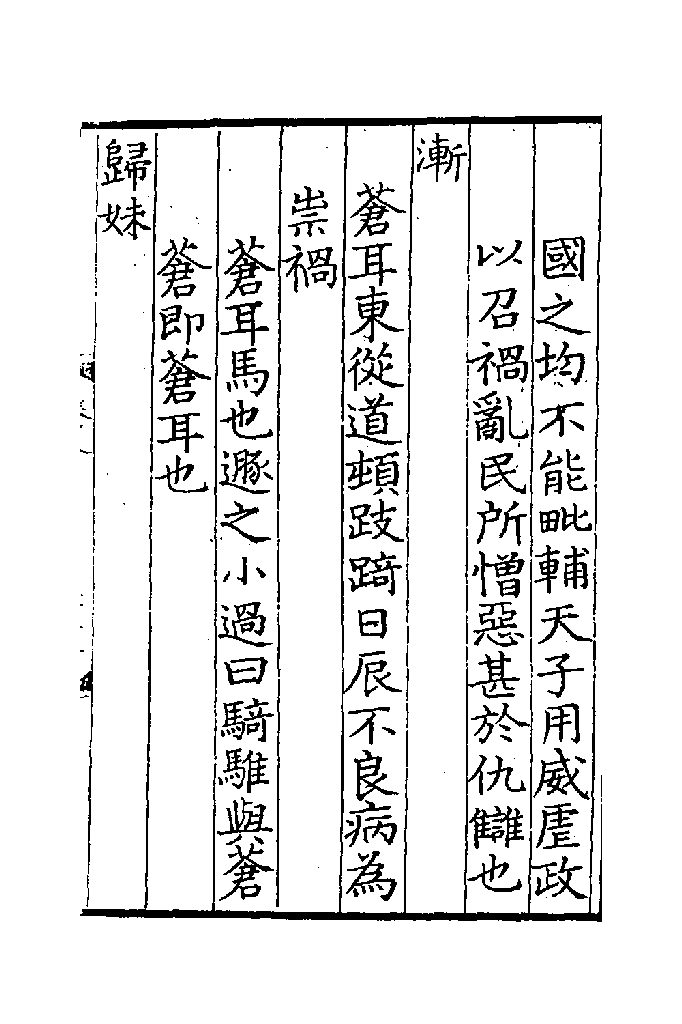 國之均不能毗輔天子用威虐政
以召禍亂民所憎惡甚於仇讎也
漸
蒼耳東從道頓跂踦日辰不良病為
祟禍
蒼耳馬也遯之小過曰騎騅與蒼
蒼即蒼耳也
歸妹